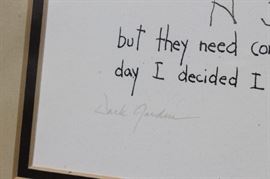 but they need co
day I decided I
Dark Garden